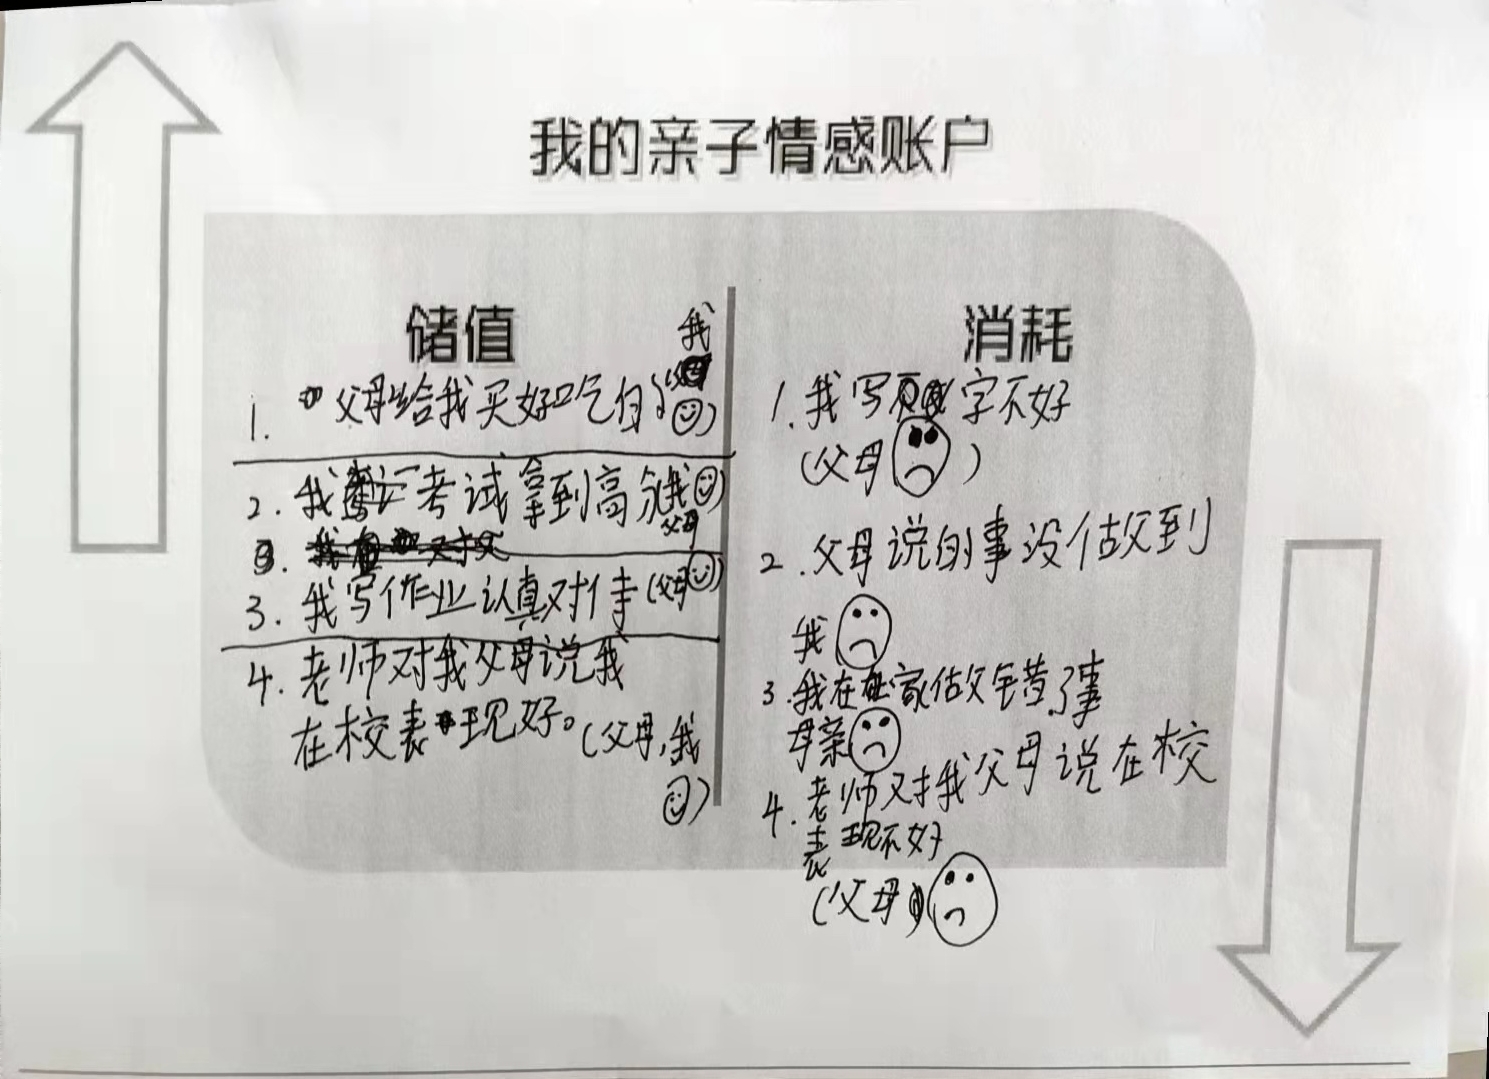 我的亲子情感账户
储值
我
1. 父母给我买好吃的(☺)
2. 我考试拿到高分(我☺)
父母
3.
3. 我写作业认真对待(父母☺)
4. 老师对我父母说我
在校表现好。(父母,我
☺)
消耗
1. 我写字不好
(父母☹)
2. 父母说的事没做到
我☹
3. 我在家做错了事
母亲☹
4. 老师对我父母说在校
表现不好
(父母)☹